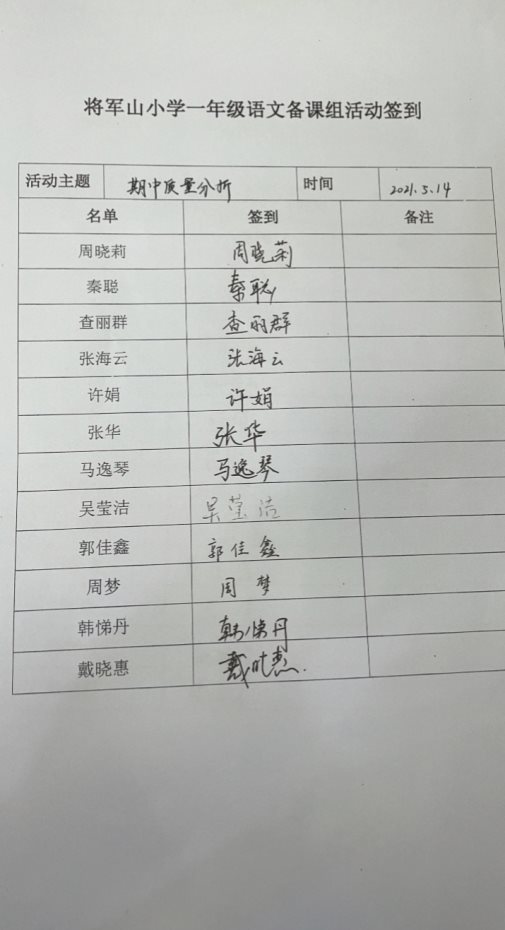 将军山小学一年级语文备课组活动签到
活动主题 期中质量分析 时间 2021.5.14
名单 签到 备注
周晓莉 周晓莉
秦聪 秦聪
查丽群 查丽群
张海云 张海云
许娟 许娟
张华 张华
马逸琴 马逸琴
吴莹洁 吴莹洁
郭佳鑫 郭佳鑫
周梦 周梦
韩悌丹 韩悌丹
戴晓惠 戴晓惠